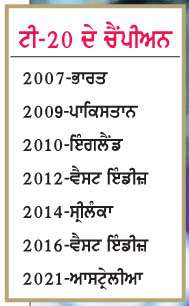 ਟੀ-20 ਦੇ ਚੈਂਪੀਅਨ
2007-ਭਾਰਤ
2009-ਪਾਕਿਸਤਾਨ
2010-ਇੰਗਲੈਂਡ
2012-ਵੈਸਟ ਇੰਡੀਜ਼
2014-ਸ੍ਰੀਲੰਕਾ
2016-ਵੈਸਟ ਇੰਡੀਜ਼
2021-ਆਸਟ੍ਰੇਲੀਆ